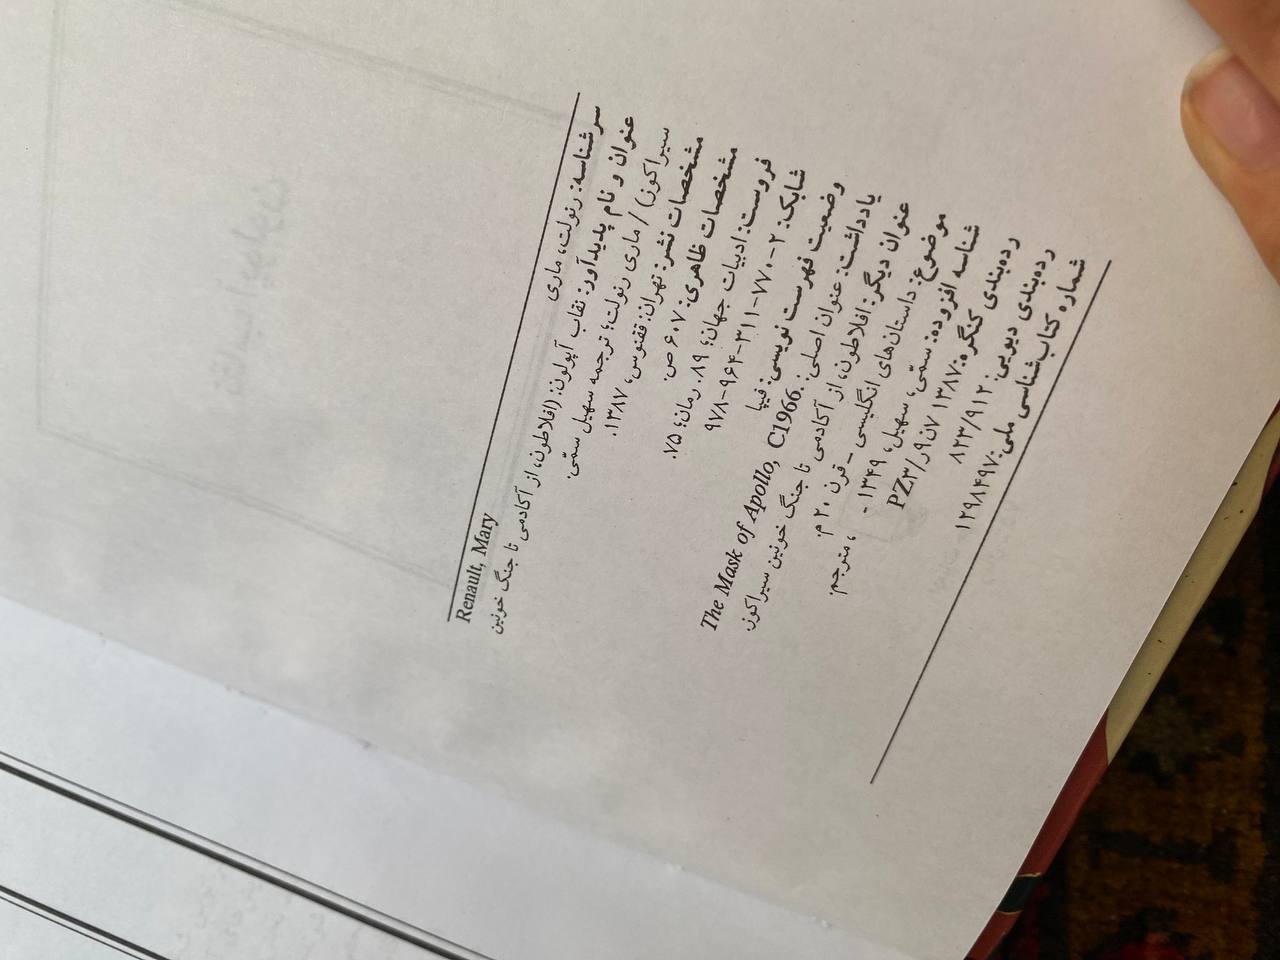 سرشناسه: رنولت، ماری Renault, Mary
عنوان و نام پدیدآور: نقاب آپولون: (افلاطون، از آکادمی تا جنگ خونین
سیراکوز) / ماری رنولت؛ ترجمه سهیل سمّی.
مشخصات نشر: تهران: ققنوس، ۱۳۸۷.
مشخصات ظاهری: ۶۰۷ ص.
فروست: ادبیات جهان؛ ۸۹. رمان؛ ۷۵.
شابک: ۲-۷۷۰-۳۱۱-۹۶۴-۹۷۸
وضعیت فهرست نویسی: فیپا
یادداشت: عنوان اصلی: The Mask of Apollo, C1966.
عنوان دیگر: افلاطون، از آکادمی تا جنگ خونین سیراکوز.
موضوع: داستان‌های انگلیسی - قرن ۲۰ م.
شناسه افزوده: سمّی، سهیل، ۱۳۴۹ - ، مترجم.
رده‌بندی کنگره: ۱۳۸۷ ۷ن۹ر/PZ۳
رده‌بندی دیویی: ۸۲۳/۹۱۲
شماره کتاب‌شناسی ملی: ۱۲۹۸۴۹۷